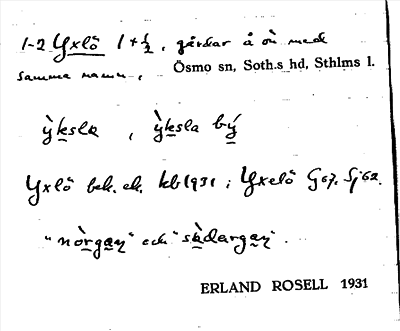 1-2 Yxlö 1 + 1/2, gårdar å ön med
samma namn,
Ösmo sn, Soth.s hd, Sthlms l.
ỳksla, ỳksla bý
Yxlö bek. ek. kb 1931; Yxelö G67. Sj 62.
"nòrgaɳ" och "sùdargaɳ".
ERLAND ROSELL 1931